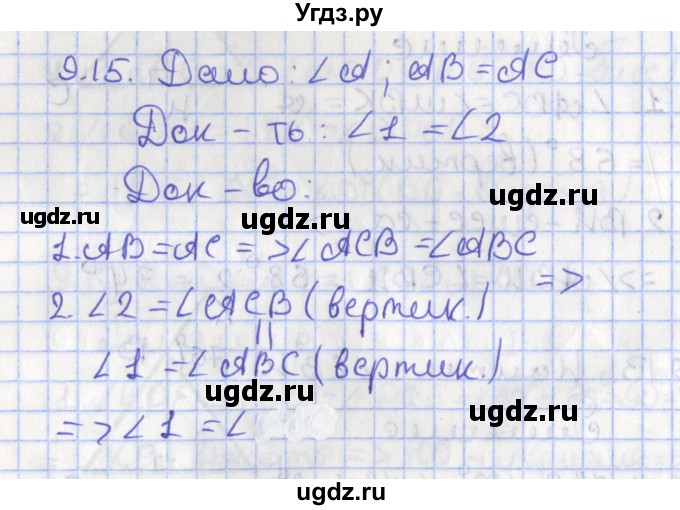 Угдз.ру
9.15. Дано: ∠A; AB = AC
Док - ть: ∠1 = ∠2
Док - во:
ugdz.ru
ugdz.ru
1. AB = AC => ∠ACB = ∠ABC
=>
2. ∠2 = ∠ACB (вертик.)
||
∠1 = ∠ABC (вертик.)
ugdz.ru
ugdz.ru
=> ∠1 = ∠
ugdz.ru